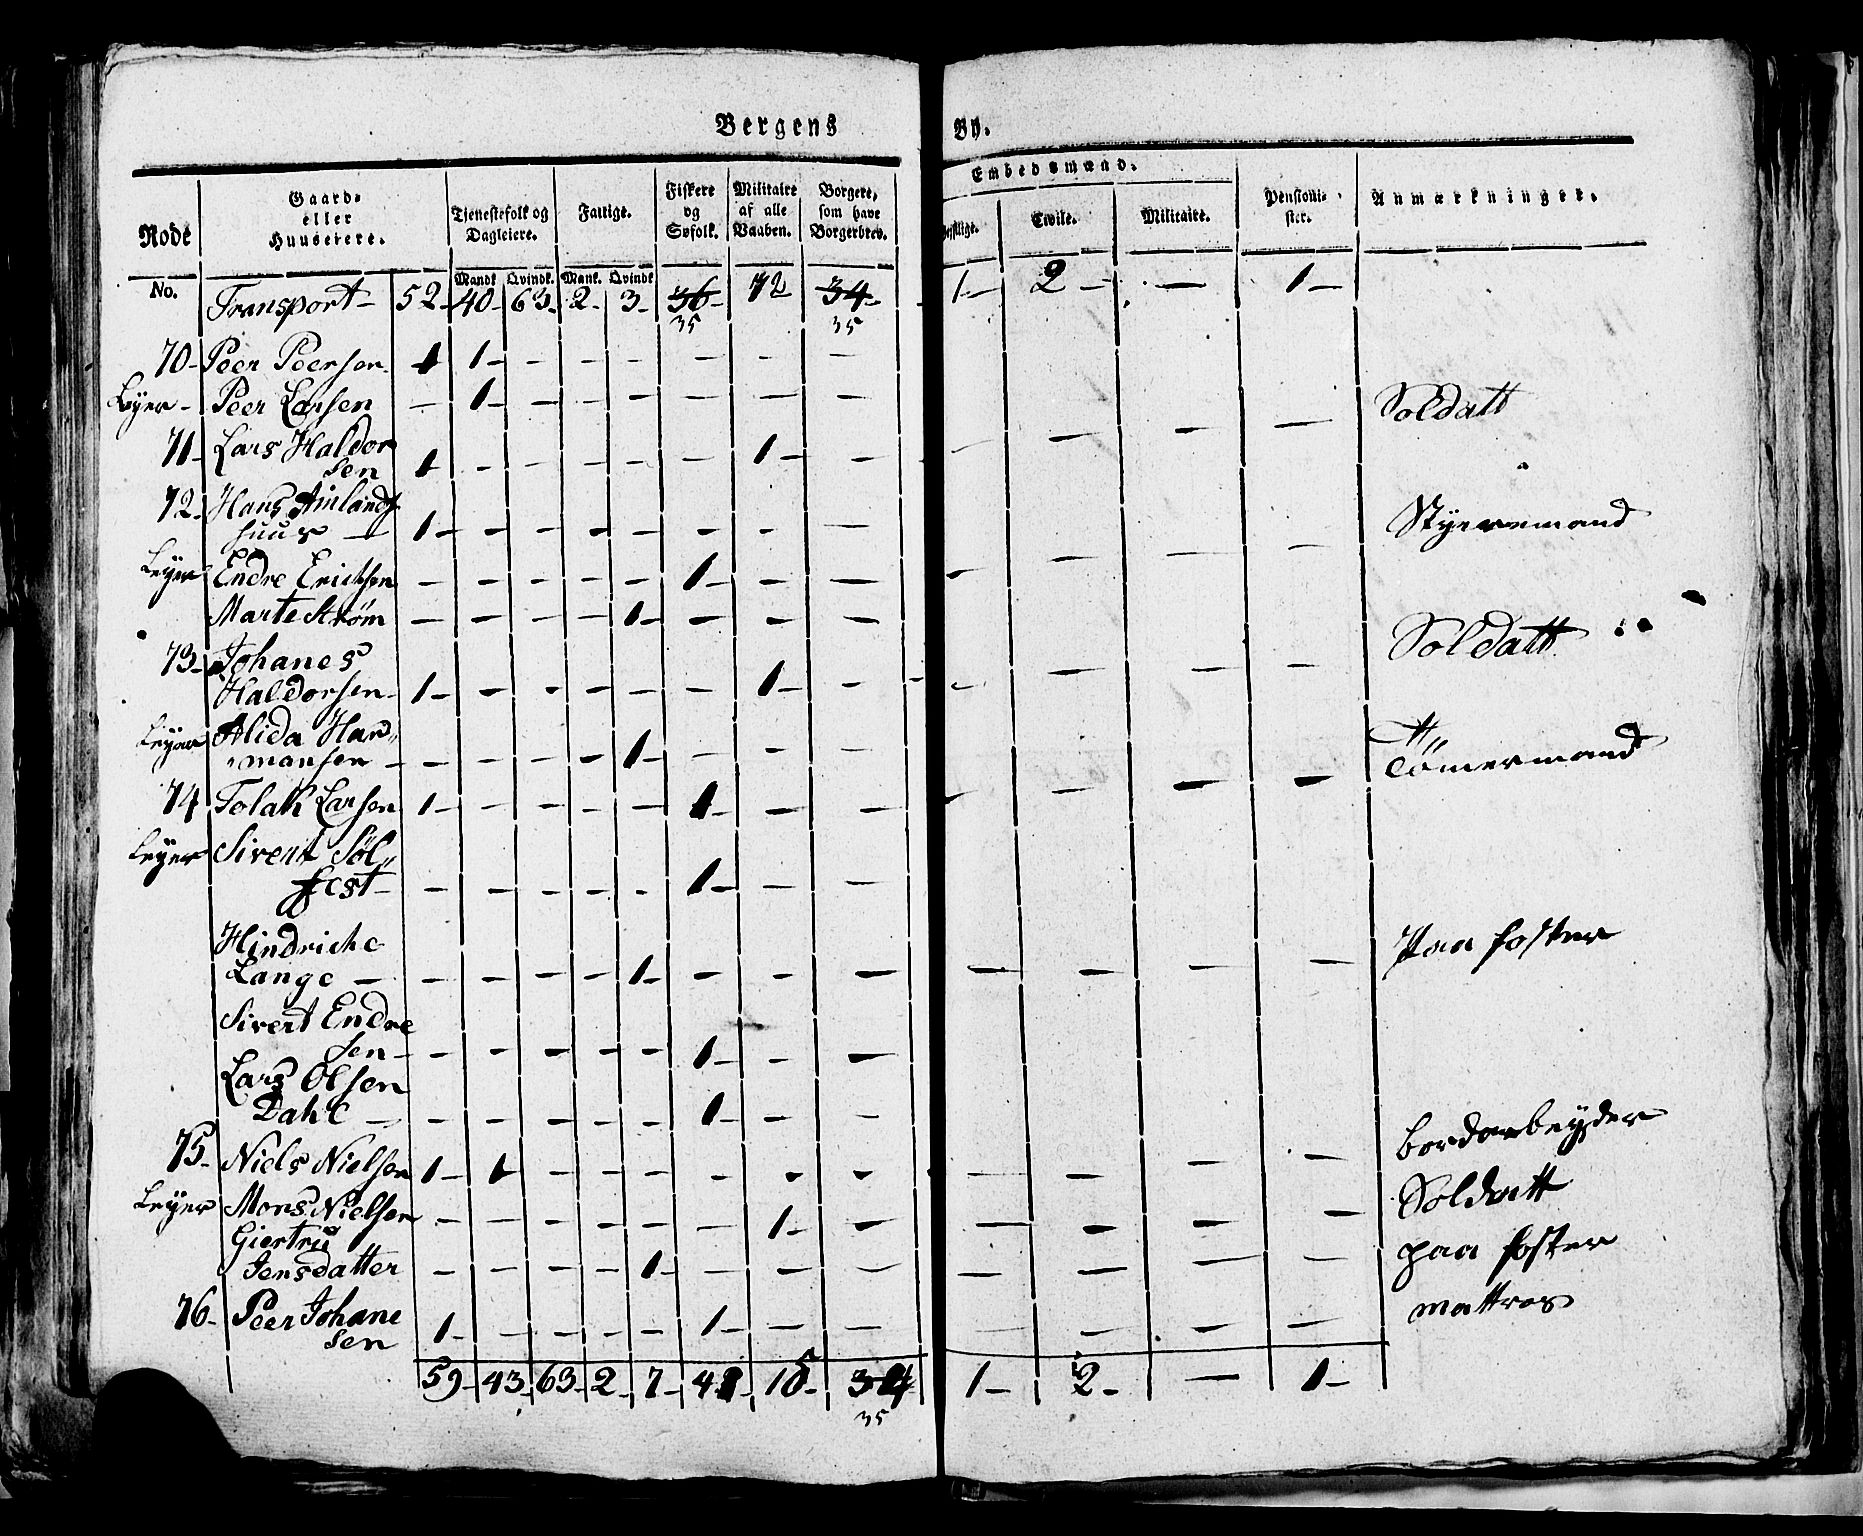 Bergens By.
Embedsmænd.
Rode No.
Gaard- eller Huuseiere.
Tjenestefolk og Dagleiere.
Fattige.
Fiskere og Søfolk.
Militaire af alle Vaaben.
Borgere, som have Borgerbrev.
Civile.
Militaire.
Pensioni- ster.
Anmærkninger.
Mandk. Qvindk. Mank. Qvindk
Transport - 52 - 40 - 63 - 2 - 3 - 36 - 12 34 - 1 - 2 - — 1 -
35 35
70 - Peer Peersen - 1 1 - - - - - - -
Leyer - Peer Larsen - 1 - - - - - - - Soldatt
71 - Lars Haldor
sen 1 - - - - - - 1 - - - - - -
72 - Hans Amlands
huus - 1 - - - - - - - - Styermand
Leyer Endre Erichsen - - - - - 1 - - - - - - -
Marte Strøm - - - - 1 - - - - Soldatt
73 - Johanes
Haldorsen - 1 - - - - - - 1 - - - - - -
Leyer Alida Har„
„mansen - - - - - 1 - - - - Tömermand
74 Tolak Larsen 1 - - - - - 1 - - - - - -
Leyer Sivert Söl„
fest - - - - - - 1 - - -
Hindriche
Lange - - - - - 1 - - - - - - - - Paa foster
Sivert Endre
sen - - - - - - 1 - - -
Lars Olsen
Dahl - - - - - - 1 - - -
75 - Niels Nielsen 1 - 1 - - - - - - - - - - bordarbeyder
Leyer Mons Nielsen - - - - - - 1 - - - - - - Soldatt
Giertru
Jensdatter - - - - 1 - - - - - - - - paa foster
76 - Peer Johane
sen 1 - - - - - 1 - - - - - - - mattros
59 - 43 - 63 - 2 - 7 - 42 - 15 - 34 1 - 2 - — 1 -
35